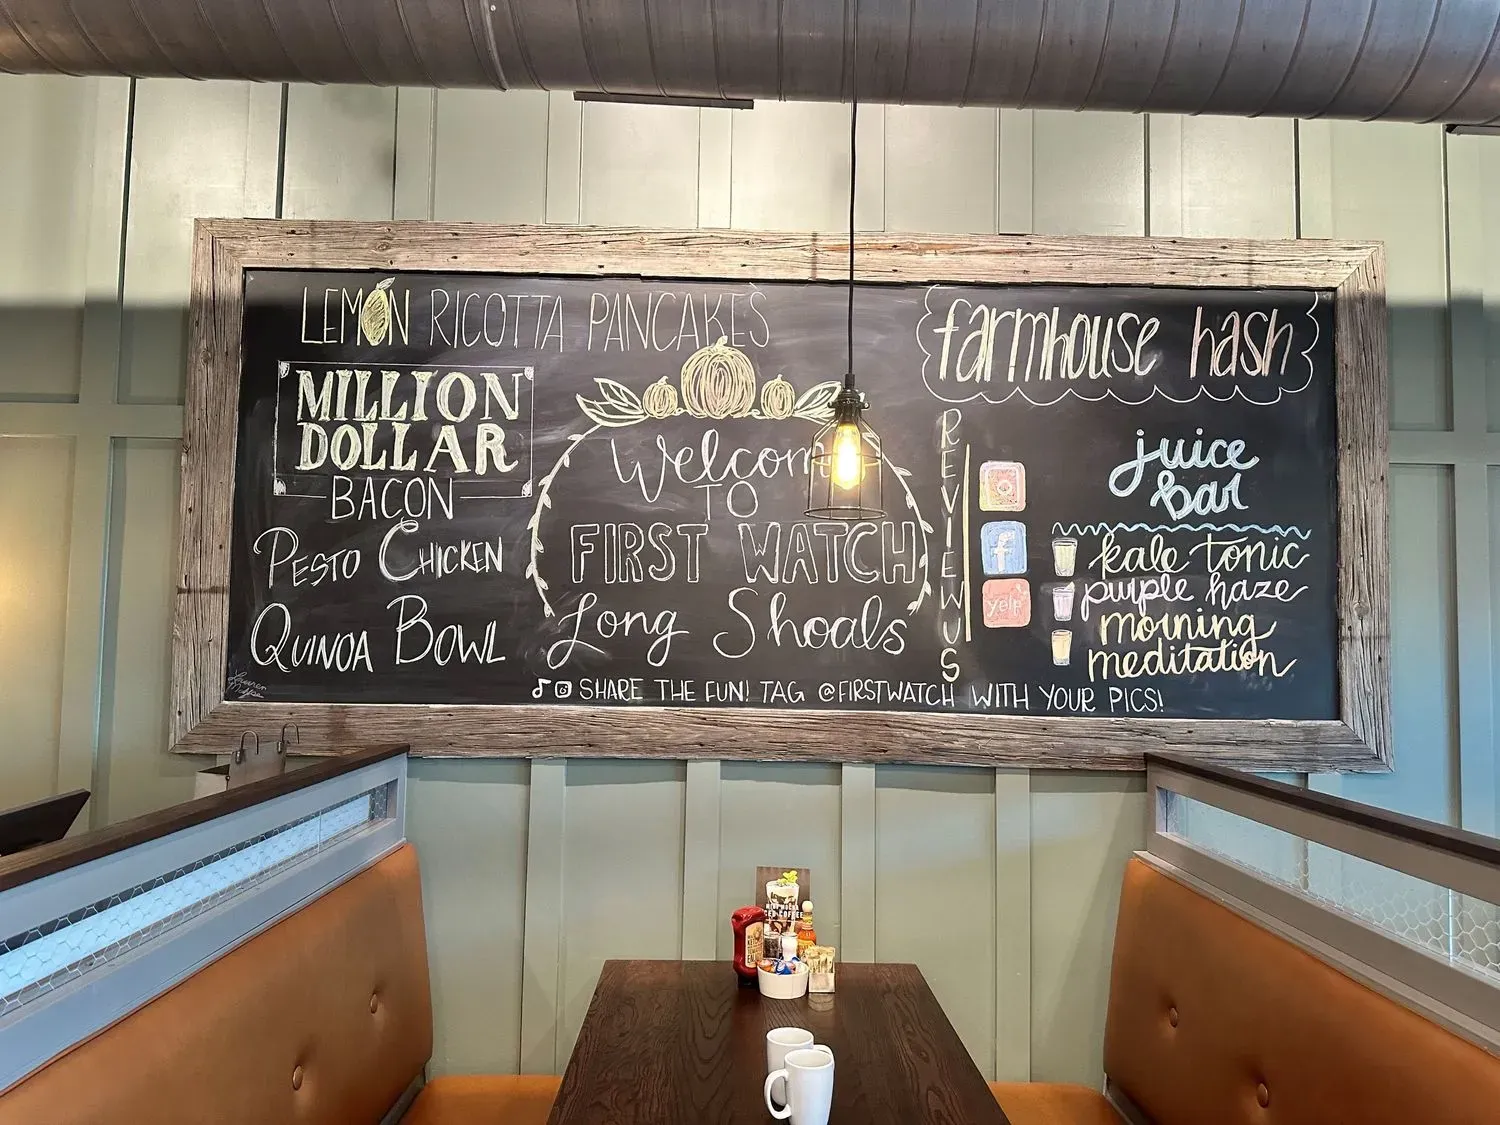 LEMON RICOTTA PANCAKES
MILLION
DOLLAR
BACON
PESTO CHICKEN
QUINOA BOWL
Welcome
TO
FIRST WATCH
Long Shoals
farmhouse hash
REVIEW US
yelp
juice
bar
kale tonic
purple haze
morning
meditation
SHARE THE FUN! TAG @FIRSTWATCH WITH YOUR PICS!